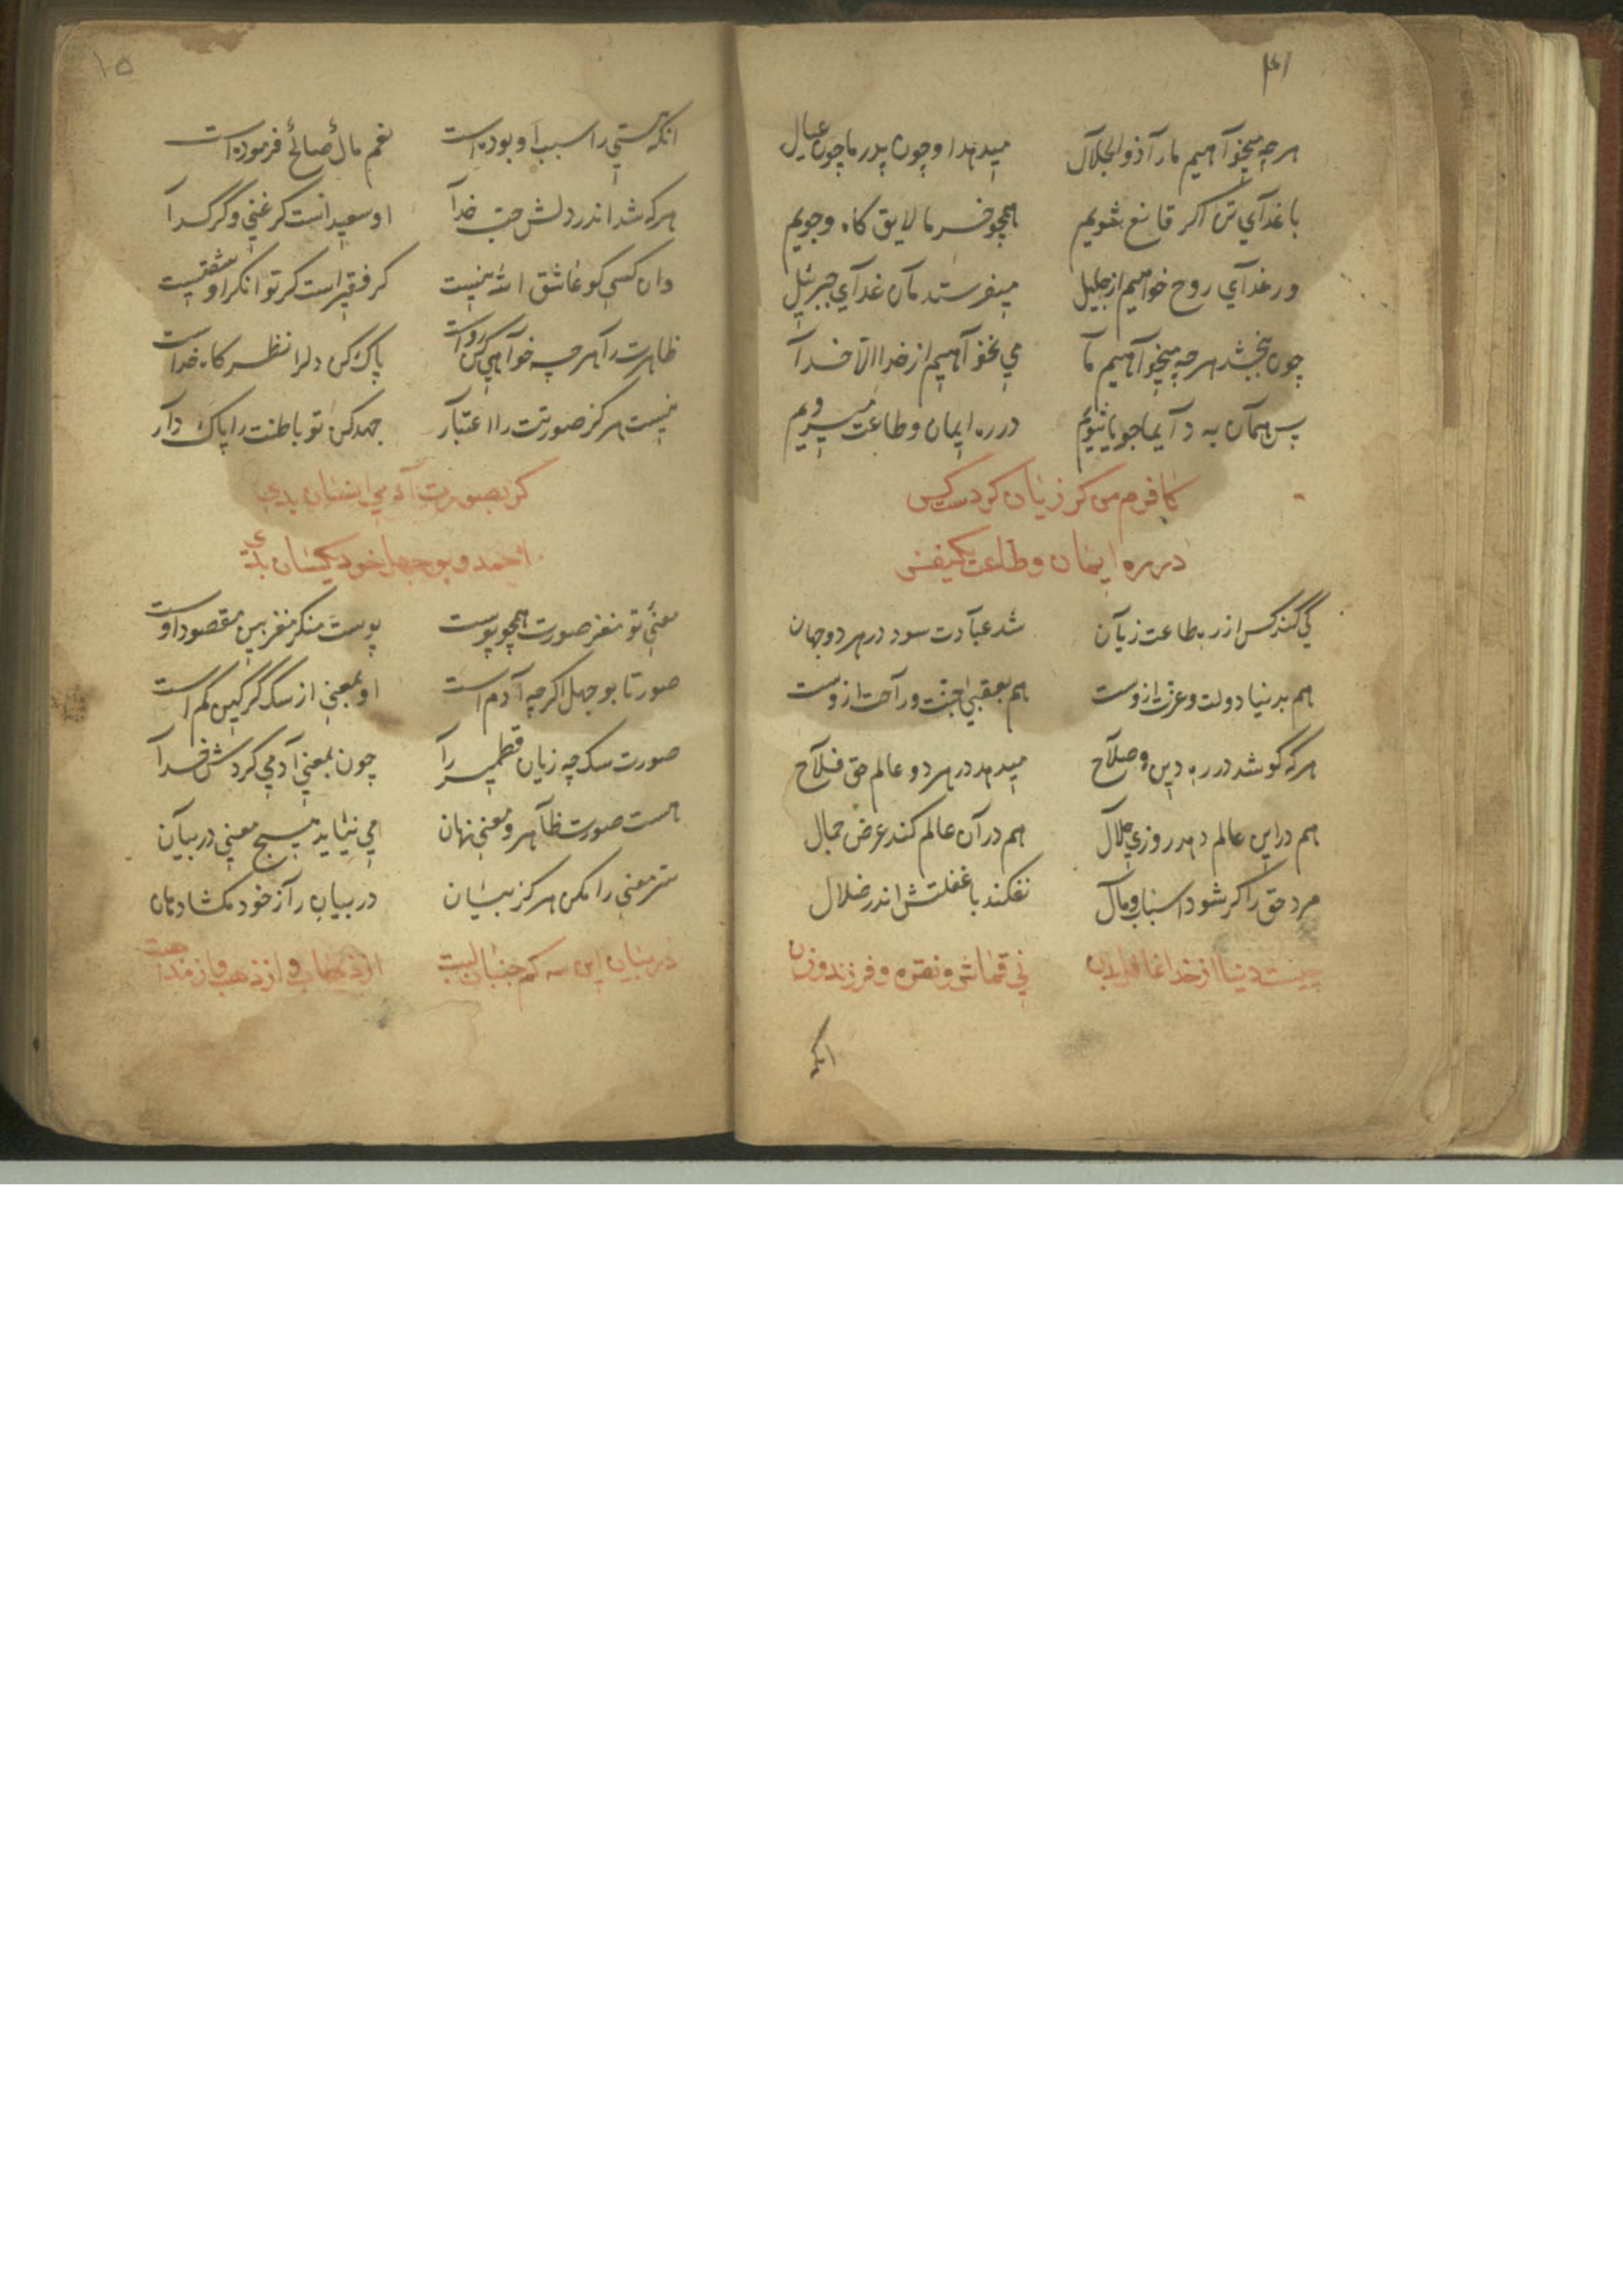 ۴۱
هرچه میخوآهیم مارآ ذوالجلآل میدهد او چون پدر ما چون عیال
با غدآي تن اکر قانع شویم همچو خر ما لایق کاه وجویم
ور غدآي روح خواهیم از جلیل میفرستدمآن غدآي جبرئیل
چون ببخشد هرچه میخوآهیم مآ می نخوآهیم از خدا الآ خدآ
پس همآن به دآیما جویا شویم در ره ایمان و طاعت میرویم
کافرم من کر زیان کردست کس
در ره ایمان و طاعت یکنفس
کي کند کس از ره طاعت زیآن شد عبآدت سود در هر دو جهان
هم بدنیا دولت و عزت ازوست هم بعقبی جنت و رآحت ازوست
هرکه کوشد در ره دین و صلآح میدهد در هر دو عالم حق فلآح
هم دراین عالم دهد روزي حلآل هم در آن عالم کند عرض جمال
مرد حق رآ کر شود اسباب و مآل نفکند با غفلتش اندر ضلال
چیست دنیا از خدا غافل بدن ني قماش و نقره و فرزند و زن
انکه
۱۵
انکه هستي را سبب او بوده است نعم مال صالح فرموده است
هرکه شد اندر دلش حب خدآ او سعید است کر غني و کر کدآ
وان کسي کو عاشق الله نیست کر فقیر است کر توانکر او شقیست
ظاهرت رآ هر چه خوآهي کن رواست پاک کن دلرا نظر کاه خداست
نیست هرکز صورتت را اعتبآر جهد کن تو باطنت را پاک دآر
کر بصورت آدمي انسان بدي
احمد و بوجهل خود یکسان بدي
معني تو مغز صورت همچو پوست پوست منکر مغز بین مقصود اوست
صورتا بوجهل اکرچه آدم است او بمعني از سک کرکین کم است
صورت سک چه زیان قطمیر رآ چون بمعني آدمي کردش خدآ
هست صورت ظآهر و معني نهان مي نیاید هیچ معني در بیآن
ستر معني را مکن هرکز بیان در بیان رآز خود مکشا دهان
در بیان این سه کم جنبان لبت از ذهاب و از ذهب وز مذهبت